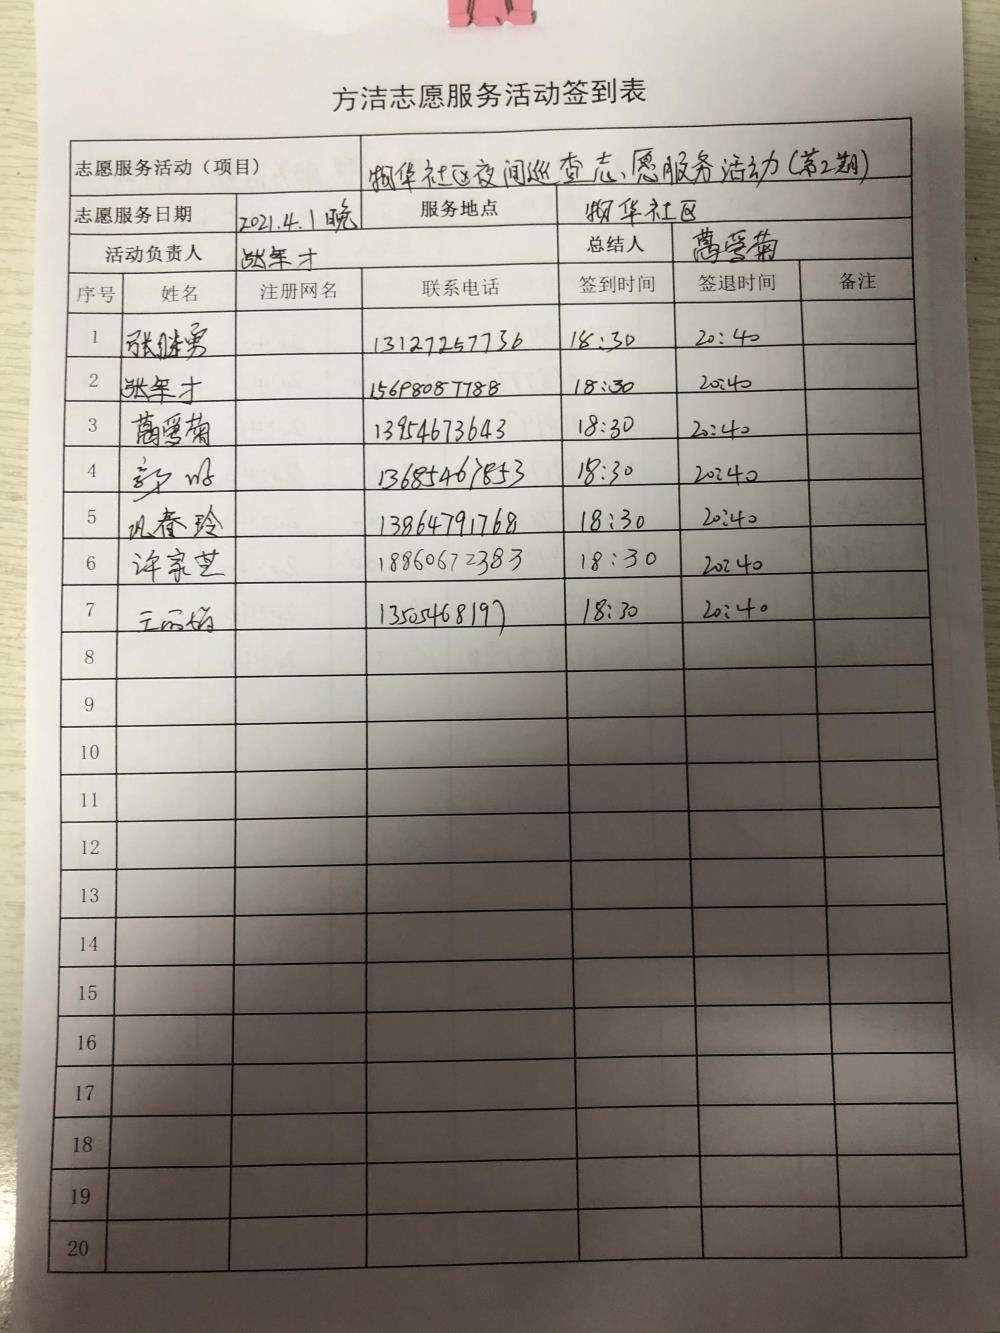 方洁志愿服务活动签到表
志愿服务活动（项目） 物华社区夜间巡查志愿服务活动（第2期）
志愿服务日期 2021.4.1晚 服务地点 物华社区
活动负责人 张年才 总结人 葛爱菊
序号 姓名 注册网名 联系电话 签到时间 签退时间 备注
1 张继勇 13127257736 18:30 20:40
2 张年才 15698087788 18:30 20:40
3 葛爱菊 13954673643 18:30 20:40
4 13685467853 18:30 20:40
5 巩春玲 13864791768 18:30 20:40
6 许家芝 18860672383 18:30 20:40
7 王丽娟 13505468197 18:30 20:40
8
9
10
11
12
13
14
15
16
17
18
19
20